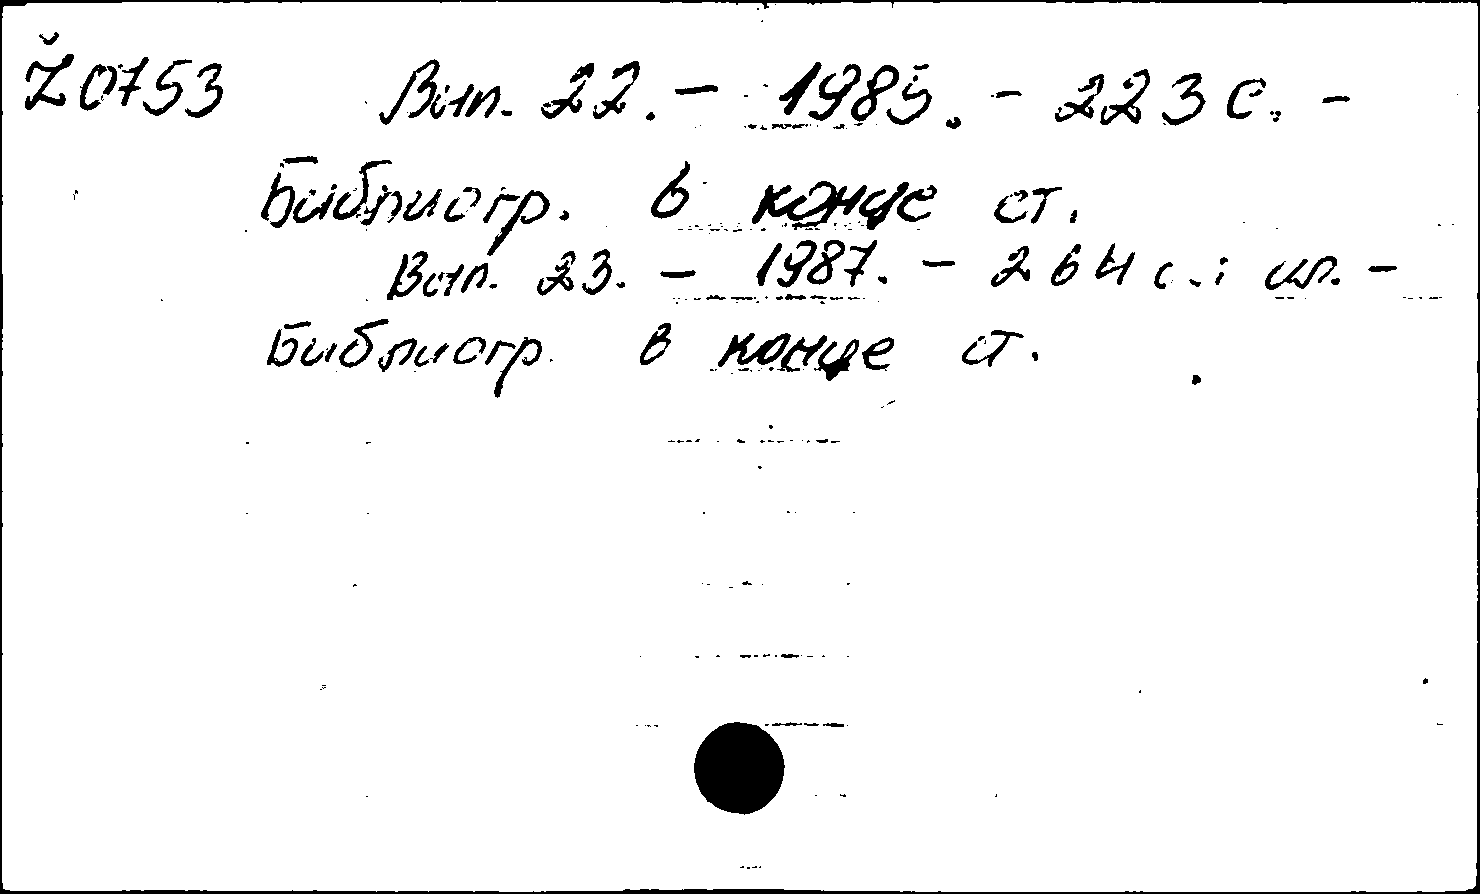 Ž0753 Вып. 22. – 1985. – 223 с. –
Библиогр. в конце ст.
Вып. 23. – 1987. – 264 с.: ил. –
Библиогр. в конце ст.